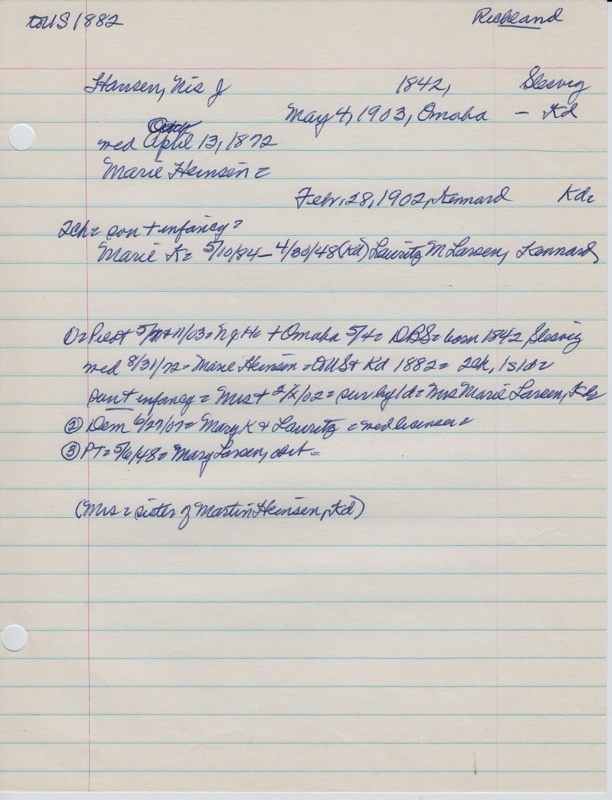 to US 1882 Richland
Hansen, Nis J 1842, Slesvig
May 4, 1903, Omaha – Kd
med April 13, 1872
Marie Heinsen =
Febr. 28, 1902, Kennard Kd=
2ch = son + infancy =
Marie K = 5/10/84 – 4/30/48 (Kd) Lauritz M Larsen, Kennard,
① = Pilot 5/ /03 = N J Ha + Omaha 5/4 = DBS = born 1842 Slesvig
med 8/31/72 = Marie Heinsen = to US + Kd 1882 = 2ch, 1s 1d =
son + infancy = Mrs + 2/ /02 = sur by 1d = Mrs Marie Larsen, Kd=
② Dem 6/27/07 = Mary K & Lauritz = med license =
③ PT = 5/6/48 = Mary Larsen, obit =
(Mrs = sister of Martin Heinsen, Kd)